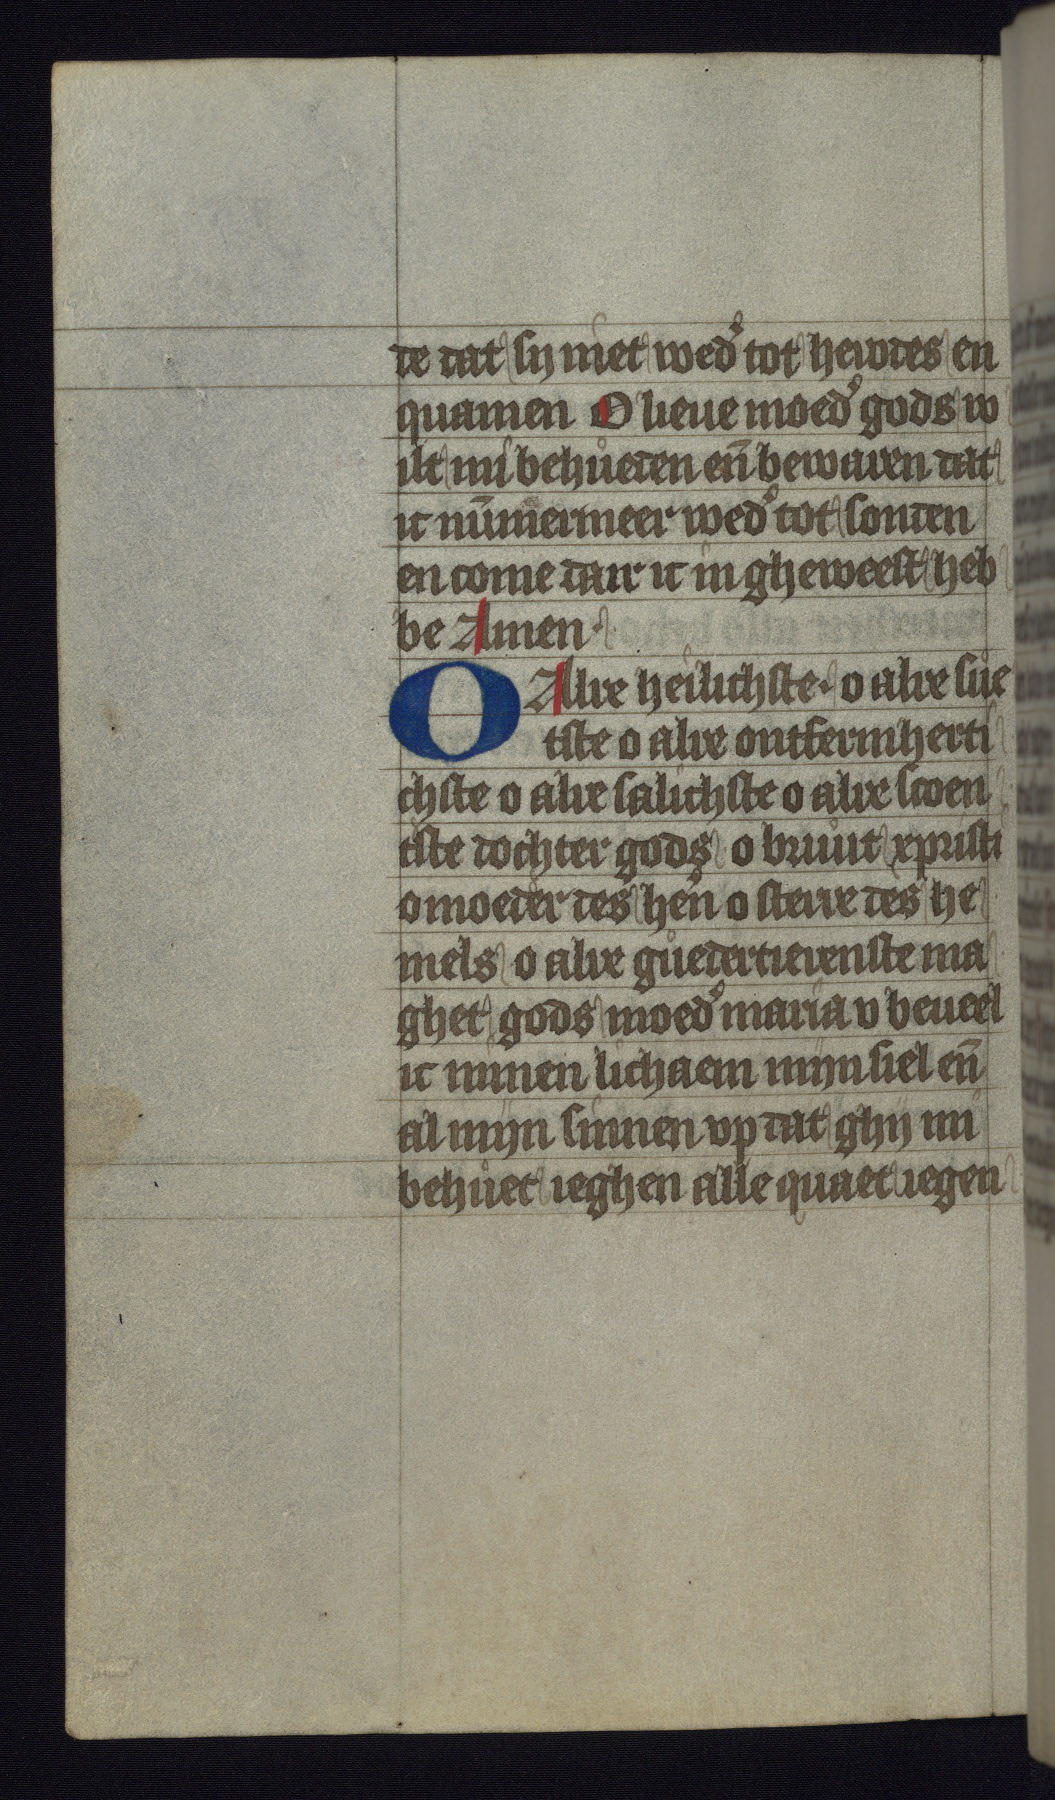 de dat sy niet wed' tot herodes en
quamen O lieue moed' gods w
ilt mi behueden en̄ bewaren dat
ic nūmermeer wed' tot sonden
en come dair ic in gheweest heb
be Amen·
O Alre heilichste· o alre sue
tste o alre ontfermherti
chste o alre salichste o alre scoen
tste dochter gods o bruut xpristi
o moeder des hen̄ o sterre des he
mels o alre guedertierenste ma
ghet gods moed' maria v beueel
ic minen lichaem mijn siel en̄
al mijn sinnen vp dat ghij mi
behuet ieghen alle quaet iegen